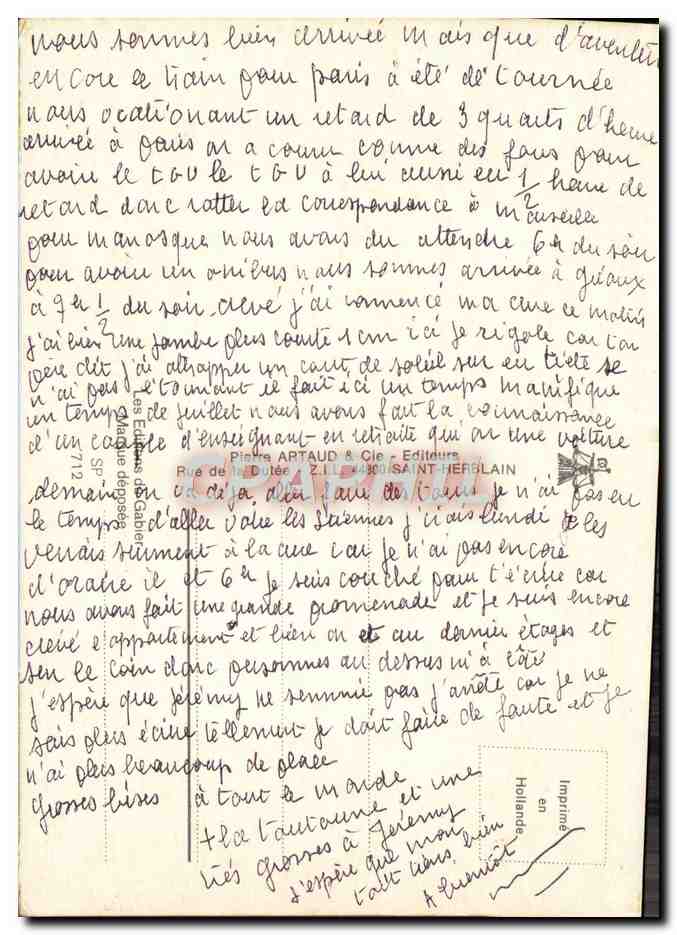 nous sommes bien arrivée mais que d'aventure
encore le train pour paris à été détournée
nous ocationant un retard de 3 quarts d'heure
arrivée à paris on a couru comme des fous pour
avoir le TGV le TGV à lui aussi eu 1/2 heure de
retard donc ratter la correspondance à marseille
pour manosque nous avons du attendre 6h du soir
pour avoir un omnibus nous sommes arrivée à gréoux
à 7h 1/2 du soir crevé j'ai comencé ma cure ce matin
j'ai bien une jambe plus courte 1 cm ici je rigole car ton
père dit j'ai attrapper un cout de soleil sur
n'ai pas étonnant il fait ici un temps manifique
un temps de juillet nous avons fait la connaissance
d'un couple d'enseignant en retraite qui on une voiture
Pierre ARTAUD & Cie - Editeurs
Rue de la Dutée - Z.I.L. 44800 SAINT-HERBLAIN
demain on va déja aller faire des tours je n'ai pas eu
le temps d'aller voire les j'irais lundi les
verrais surement à la cure car je n'ai pas encore
d'oraire il et 6h je suis couché pour t'écrire car
nous avons fait une grande promenade et je suis encore
crevé l'appartement et bien on et au dernier étages et
sur le coin donc personnes au dessus ni à côté
j'espère que Jérémy ne s'ennuie pas j'arrête car je ne
sais plus écrire tellement je doit faire de faute et je
n'ai plus beaucoup de place
grosses bises à tout le monde
+ la tantoune et une
très grosses à Jérémy
j'espère que mon
tout bien
A bientôt
Les Editions du Gabier
Marque déposée
SP 7712
Imprimé
en
Hollande
CPAPHIL